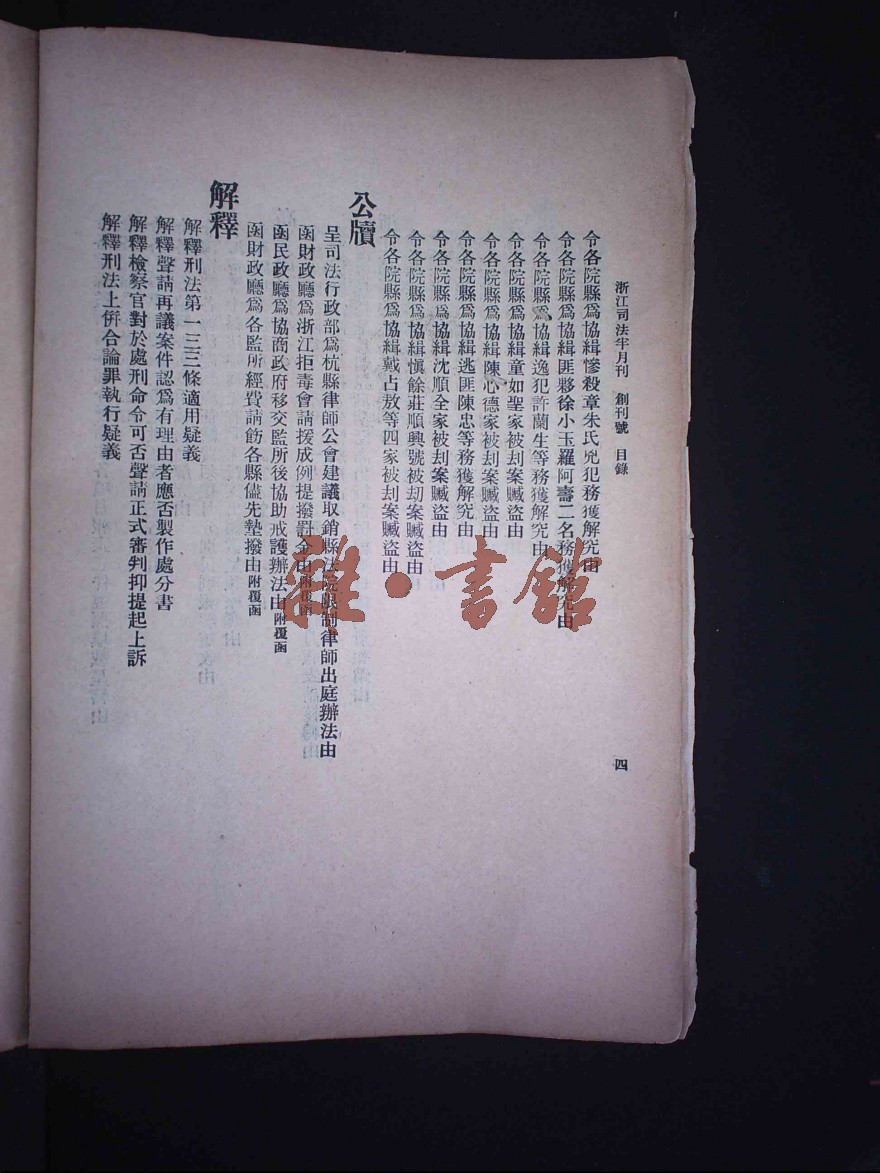 浙江司法半月刊 創刊號 目錄 四
令各院縣爲協緝慘殺章朱氏兇犯務獲解究由
令各院縣爲協緝匪夥徐小玉羅阿壽二名務獲解究由
令各院縣爲協緝逸犯許蘭生等務獲解究由
令各院縣爲協緝童如聖家被刦案贓盜由
令各院縣爲協緝陳心德家被刦案贓盜由
令各院縣爲協緝逃匪陳忠等務獲解究由
令各院縣爲協緝沈順全家被刦案贓盜由
令各院縣爲協緝愼餘莊順興號被刦案贓盜由
令各院縣爲協緝戴占敖等四家被刦案贓盜由
公牘
呈司法行政部爲杭縣律師公會建議取銷縣法院限制律師出庭辦法由
函財政廳爲浙江拒毒會請援成例提撥罰金由附覆函
函民政廳爲協商政府移交監所後協助戒護辦法由附覆函
函財政廳爲各監所經費請飭各縣儘先墊撥由附覆函
解釋
解釋刑法第一三三條適用疑義
解釋聲請再議案件認爲有理由者應否製作處分書
解釋檢察官對於處刑命令可否聲請正式審判抑提起上訴
解釋刑法上併合論罪執行疑義
雜·書館